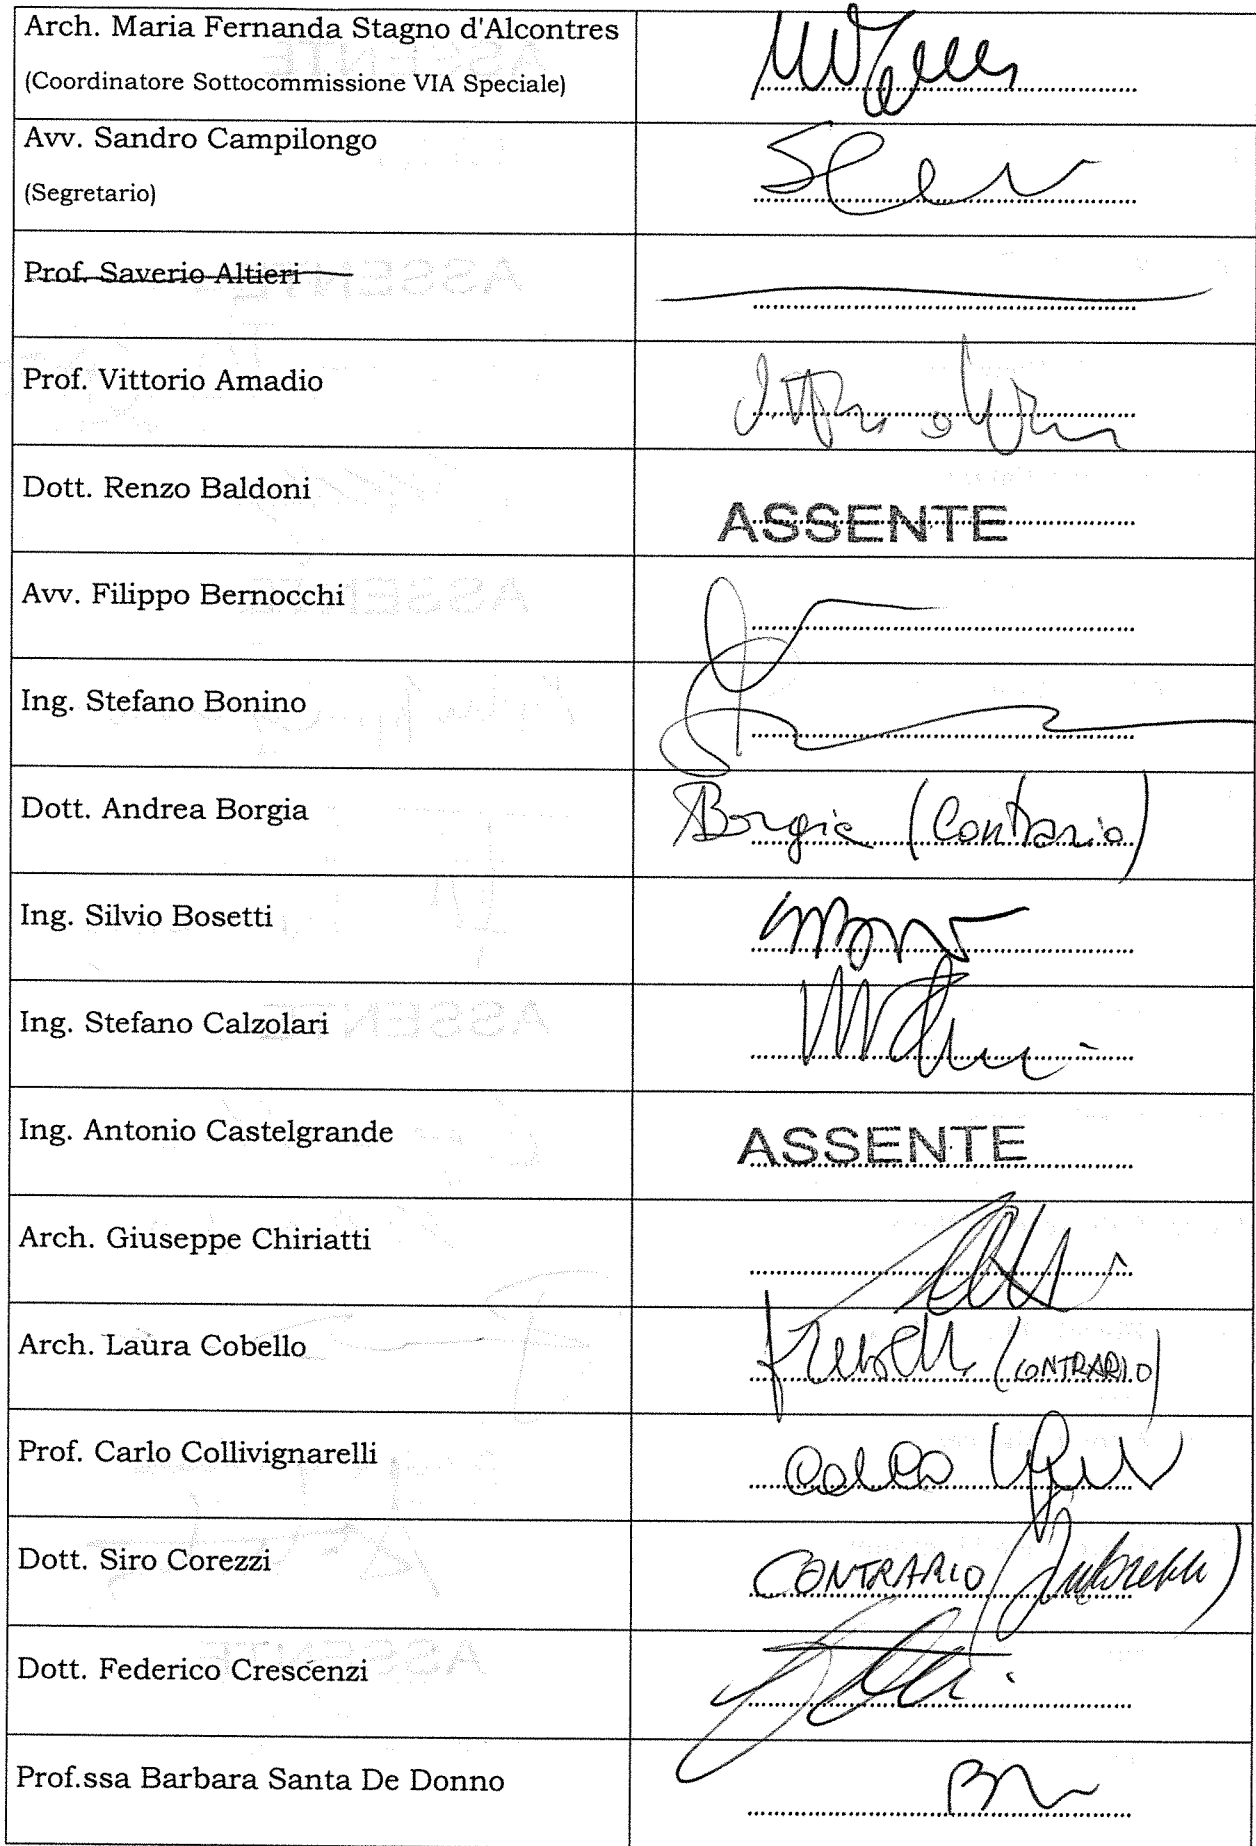 Arch. Maria Fernanda Stagno d'Alcontres
(Coordinatore Sottocommissione VIA Speciale)
Avv. Sandro Campilongo
(Segretario)
Prof. Saverio Altieri
Prof. Vittorio Amadio
Dott. Renzo Baldoni
ASSENTE
Avv. Filippo Bernocchi
Ing. Stefano Bonino
Dott. Andrea Borgia
Borgia (Contrario)
Ing. Silvio Bosetti
Ing. Stefano Calzolari
Ing. Antonio Castelgrande
ASSENTE
Arch. Giuseppe Chiriatti
Arch. Laura Cobello
(CONTRARIO)
Prof. Carlo Collivignarelli
Dott. Siro Corezzi
CONTRARIO
Dott. Federico Crescenzi
Prof.ssa Barbara Santa De Donno